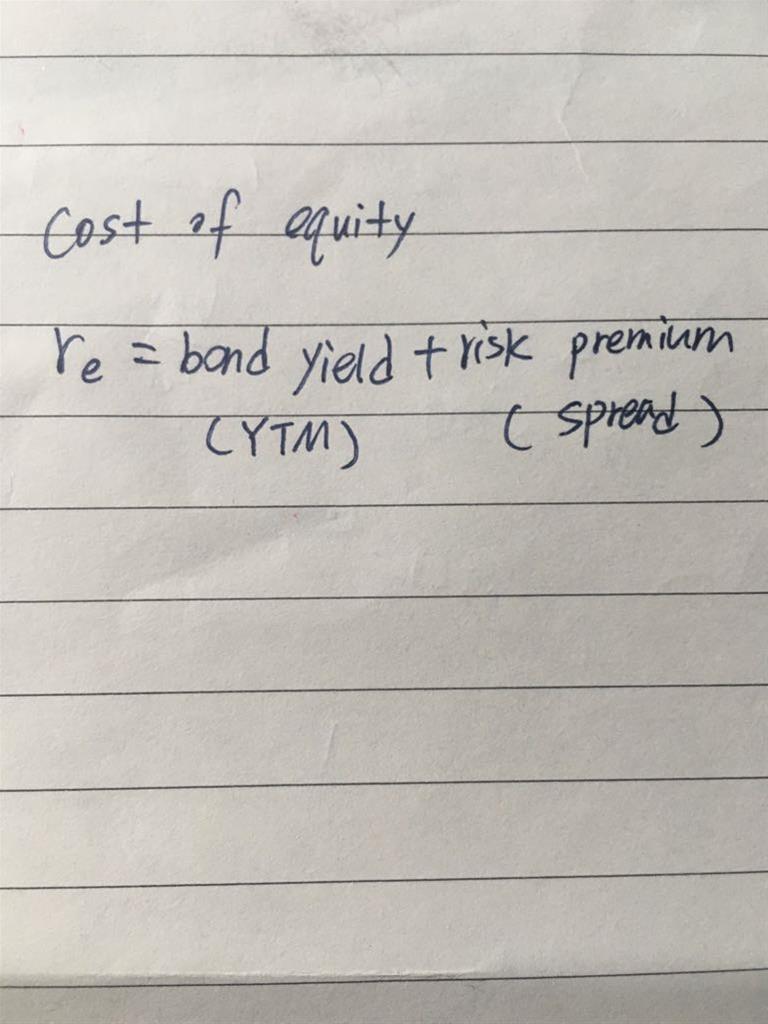 Cost of equity
re = bond yield + risk premium
(YTM) (spread)